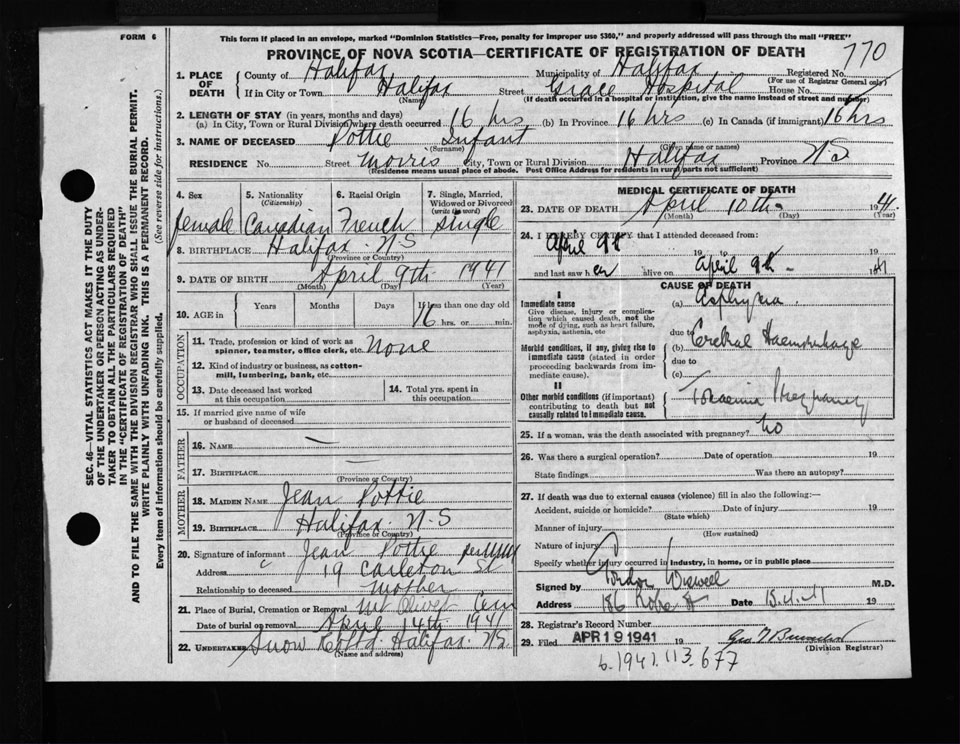 FORM 6
This form if placed in an envelope, marked "Dominion Statistics—Free, penalty for improper use $300," and properly addressed will pass through the mail "FREE"
PROVINCE OF NOVA SCOTIA—CERTIFICATE OF REGISTRATION OF DEATH
770
1. PLACE OF DEATH
County of Halifax Municipality of Halifax Registered No.
(For use of Registrar General only)
If in City or Town Halifax Street Grace Hospital House No.
(Name) (If death occurred in a hospital or institution, give the name instead of street and number)
2. LENGTH OF STAY (in years, months and days)
(a) In City, Town or Rural Division where death occurred 16 hrs (b) In Province 16 hrs (c) In Canada (if immigrant) 16 hrs
3. NAME OF DECEASED Pottie Infant
(Surname) (Given name or names)
RESIDENCE No. Street Morris City, Town or Rural Division Halifax Province N S
(Residence means usual place of abode. Post Office Address for residents in rural parts not sufficient)
4. Sex 5. Nationality 6. Racial Origin 7. Single, Married,
(Citizenship) Widowed or Divorced
(write the word)
female Canadian French single
8. BIRTHPLACE Halifax N S
(Province or Country)
9. DATE OF BIRTH April 9th 1941
(Month) (Day) (Year)
10. AGE in Years Months Days If less than one day old
16 hrs. or min.
OCCUPATION
11. Trade, profession or kind of work as
spinner, teamster, office clerk, etc. None
12. Kind of industry or business, as cotton-
mill, lumbering, bank, etc.
13. Date deceased last worked
at this occupation
14. Total yrs. spent in
this occupation
15. If married give name of wife
or husband of deceased
FATHER
16. NAME —
17. BIRTHPLACE —
(Province or Country)
MOTHER
18. MAIDEN NAME Jean Pottie
19. BIRTHPLACE Halifax N-S
(Province or Country)
20. Signature of informant Jean Pottie per
Address 19 Carleton St
Relationship to deceased mother
21. Place of Burial, Cremation or Removal Mt Olivet Cem
Date of burial or removal April 14th 1941
22. UNDERTAKER Snow & Co Ltd. Halifax. N.S.
(Name and address)
MEDICAL CERTIFICATE OF DEATH
23. DATE OF DEATH April 10th 1941
(Month) (Day) (Year)
24. I HEREBY CERTIFY that I attended deceased from:
April 9th 19 to April 9th 19
and last saw her alive on 1941
CAUSE OF DEATH
I
Immediate cause (a) Asphyxia
Give disease, injury or complica-
tion which caused death, not the
mode of dying, such as heart failure,
asphyxia, asthenia, etc
due to
Morbid conditions, if any, giving rise to
immediate cause (stated in order
proceeding backwards from im-
mediate cause).
(b) Cerebral Haemorrhage
due to
(c)
II
Other morbid conditions (if important)
contributing to death but not
causally related to immediate cause.
Toxaemia Pregnancy
25. If a woman, was the death associated with pregnancy? No
26. Was there a surgical operation? Date of operation 19
State findings Was there an autopsy?
27. If death was due to external causes (violence) fill in also the following:—
Accident, suicide or homicide? Date of injury 19
(State which)
Manner of injury
(How sustained)
Nature of injury
Specify whether injury occurred in Industry, in home, or in public place
Signed by Gordon Wiswell M.D.
Address 186 Date 19
28. Registrar's Record Number
29. Filed APR 19 1941 19 Geo
(Division Registrar)
b. 1941. 113. 677
SEC. 46—VITAL STATISTICS ACT MAKES IT THE DUTY
OF THE UNDERTAKER OR PERSON ACTING AS UNDER-
TAKER TO OBTAIN ALL THE PARTICULARS REQUIRED
IN THE "CERTIFICATE OF REGISTRATION OF DEATH"
AND TO FILE THE SAME WITH THE DIVISION REGISTRAR WHO SHALL ISSUE THE BURIAL PERMIT.
WRITE PLAINLY WITH UNFADING INK. THIS IS A PERMANENT RECORD.
Every item of information should be carefully supplied. (See reverse side for instructions.)